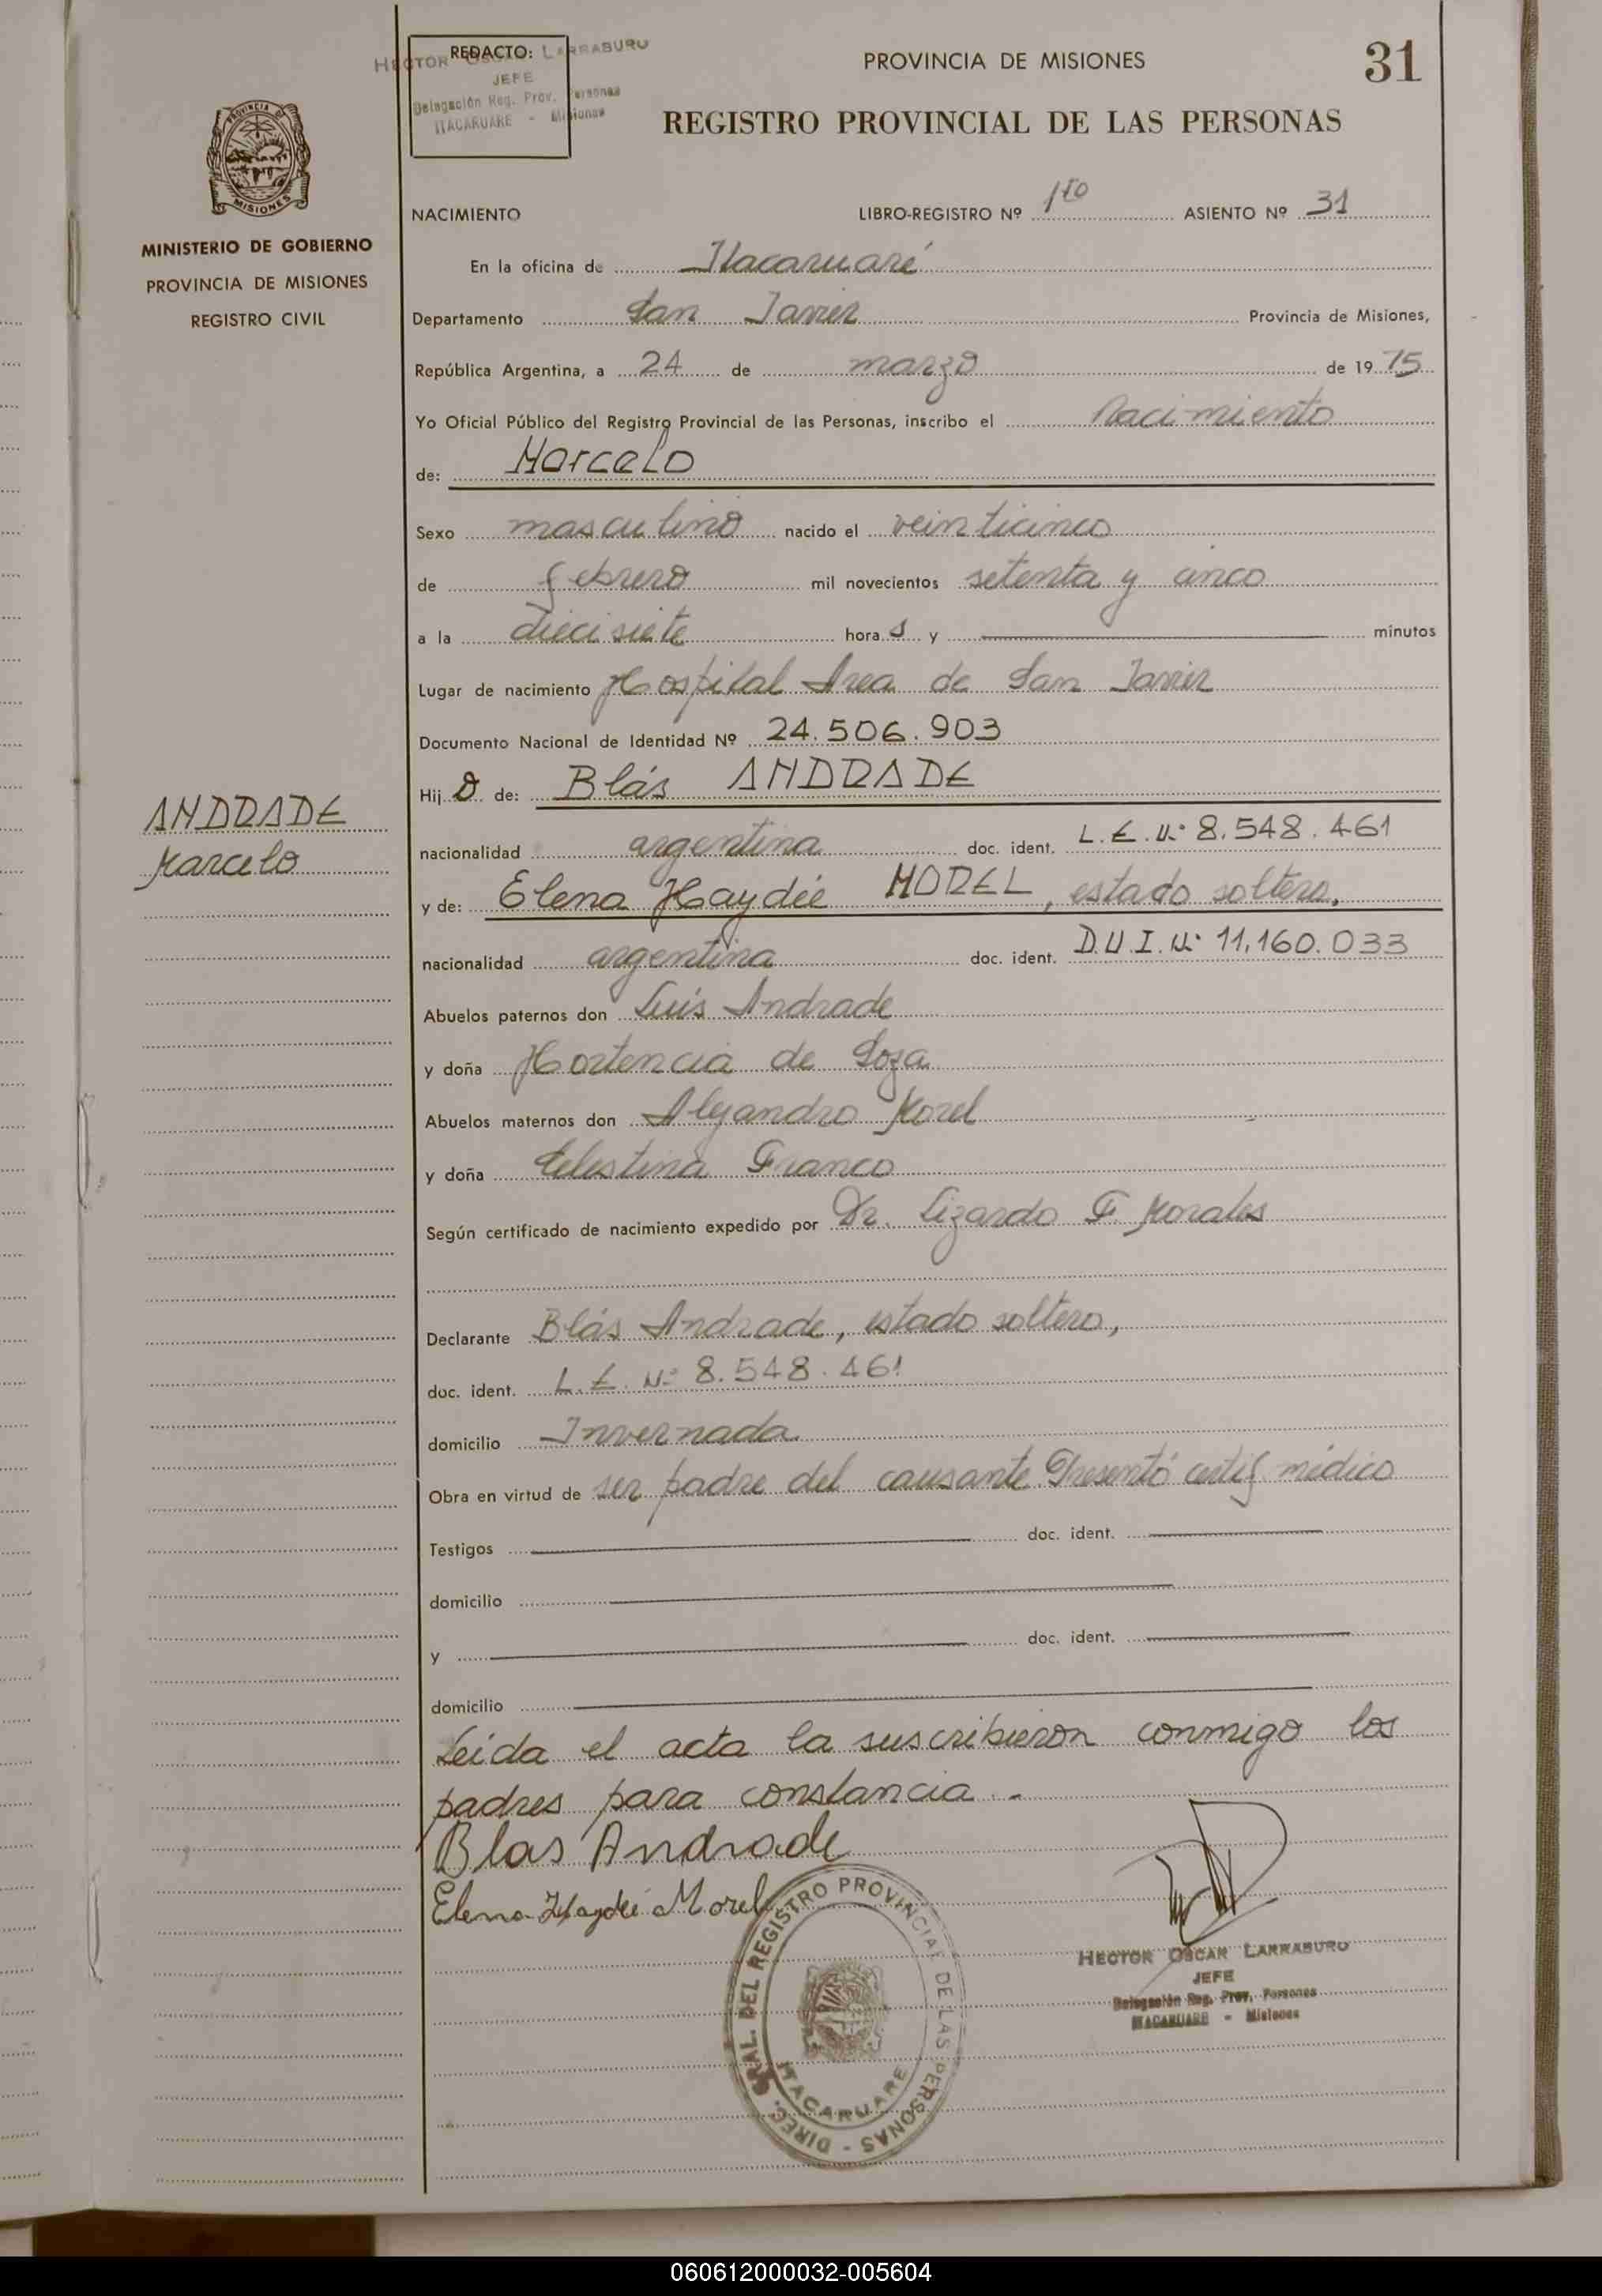 REDACTO:
HECTOR OSCAR LARRABURO
JEFE
Delegación Reg. Prov. Personas
ITACARUARE - Misiones
PROVINCIA DE MISIONES
31
REGISTRO PROVINCIAL DE LAS PERSONAS
PROVINCIA
MISIONES
MINISTERIO DE GOBIERNO
PROVINCIA DE MISIONES
REGISTRO CIVIL
NACIMIENTO LIBRO-REGISTRO Nº 1ro ASIENTO Nº 31
En la oficina de Itacaruaré
Departamento San Javier Provincia de Misiones,
República Argentina, a 24 de marzo de 1975
Yo Oficial Público del Registro Provincial de las Personas, inscribo el nacimiento
de: Marcelo
Sexo masculino nacido el veinticinco
de febrero mil novecientos setenta y cinco
a la diecisiete hora s y minutos
Lugar de nacimiento Hospital Area de San Javier
Documento Nacional de Identidad Nº 24.506.903
Hijo de: Blás ANDRADE
ANDRADE
Marcelo
nacionalidad argentina doc. ident. L.E.Nº 8.548.461
y de: Elena Haydée MOREL, estado soltera,
nacionalidad argentina doc. ident. D.U.I.Nº 11.160.033
Abuelos paternos don Luis Andrade
y doña Hortencia de Soza
Abuelos maternos don Alejandro Morel
y doña Celestina Franco
Según certificado de nacimiento expedido por Dr. Lizardo F. Morales
Declarante Blás Andrade, estado soltero,
doc. ident. L.E. Nº 8.548.461
domicilio Invernada
Obra en virtud de ser padre del causante. Presentó certif médico
Testigos doc. ident.
domicilio
y doc. ident.
domicilio
Leida el acta la suscribieron conmigo los
padres para constancia.-
Blas Andrade
Elena Haydeé Morel
DIREC. GRAL. DEL REGISTRO PROVINCIAL DE LAS PERSONAS -
ITACARUARE
HECTOR OSCAR LARRABURO
JEFE
Delegación Reg. Prov. Personas
ITACARUARE - Misiones
060612000032-005604